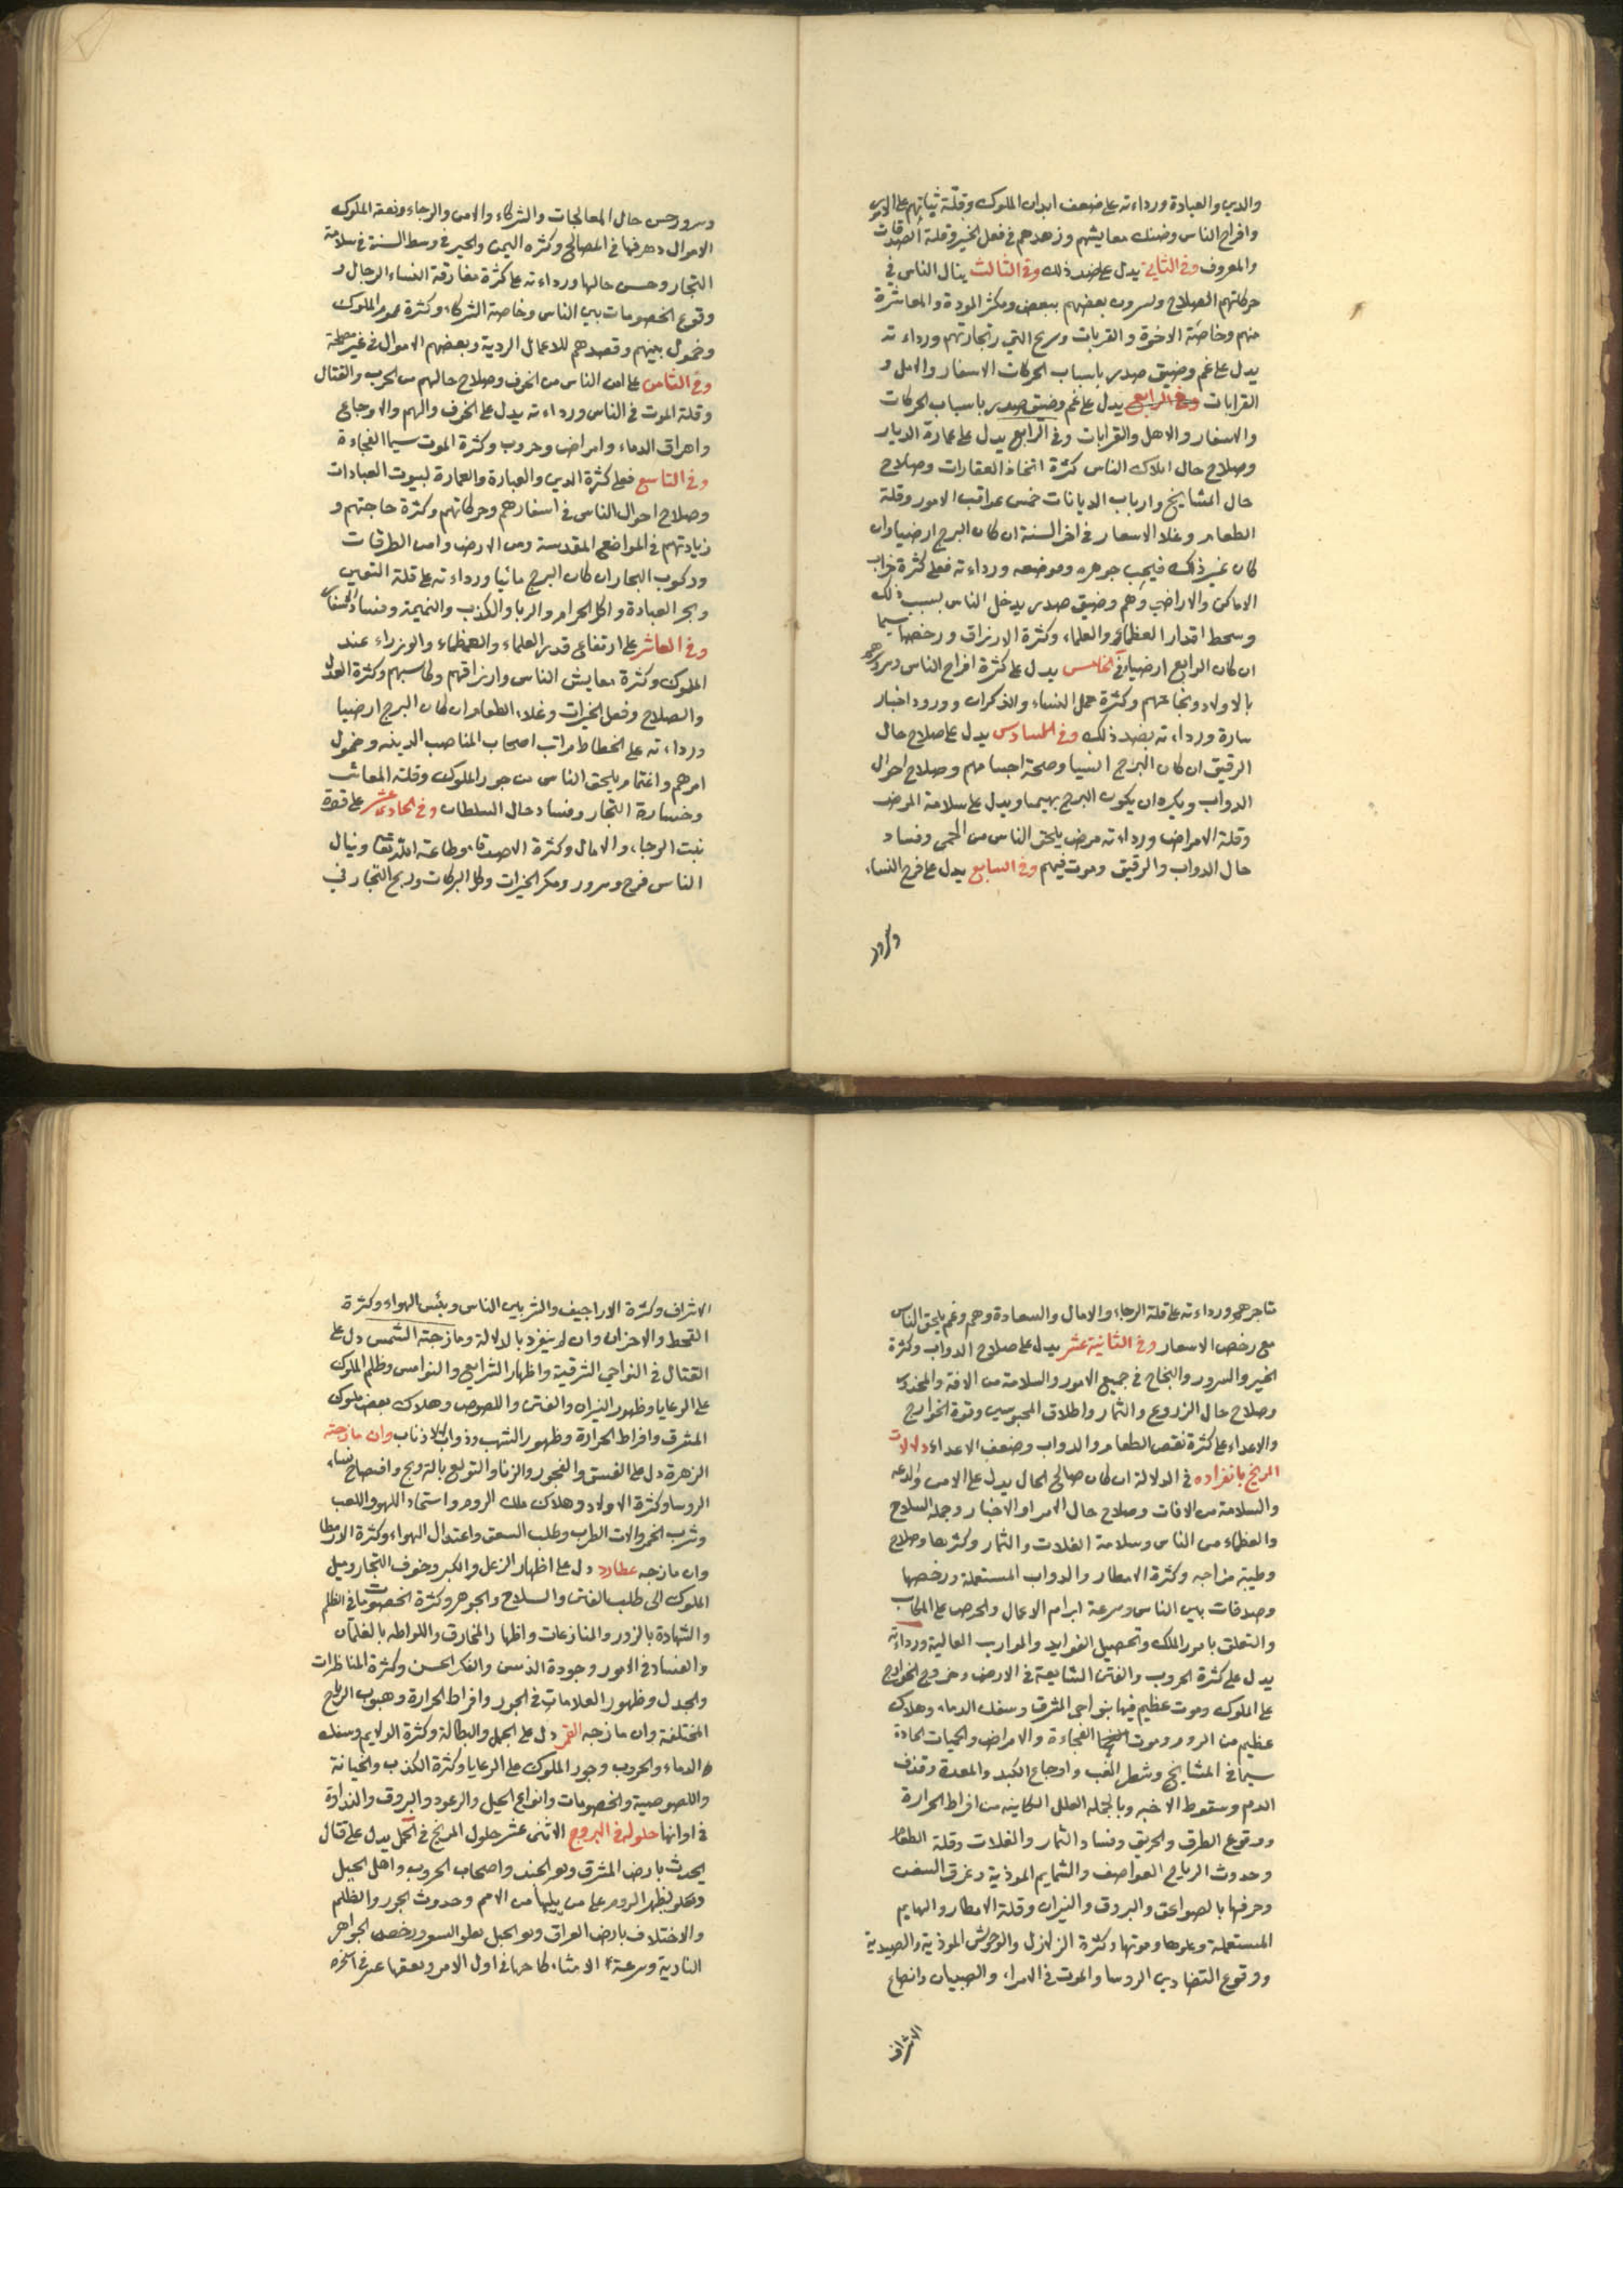 والدين والعبادة ورداءته على ضعف ابدان الملوك وقلة ثباتهم على الامور
وافراح الناس وضنك معايشهم وزهدهم في فعل الخير وقلة الصدقات
والمعروف وفي الثاني يدل على ضد ذلك وفي الثالث ينال الناس في
حركاتهم الصلاح ويسرون بعضهم ببعض ويكثر المودة والمعاشرة
منهم وخاصة الاخوة والقربات وربح التي رتجارتهم ورداءته
يدل على غم وضيق صدر باسباب الحركات الاسفار والامل و
القرابات وفي الرابع يدل على غم وضيق صدر باسباب الحركات
والاسفار والاهل والقرابات وفي الرابع يدل على عمارة الديار
وصلاح حال املاك الناس كثرة اتخاذ العقارات وصلاح
حال المشايخ وارباب الديانات حسن عواقب الامور وقلة
الطعام وغلا الاسعار في اخر السنة ان كان البرج ارضيا وان
كان غير ذلك فيجب جوهره وموضعه ورداءته فعلى كثرة خراب
الاماكن والاراضي وهم وضيق صدر يدخل الناس بسبب ذلك
وسحط اقدار العظماء والعلماء وكثرة الارزاق ورخصها سيما
ان كان الرابع ارضيا وفي الخامس يدل على كثرة افراح الناس وسرورهم
بالاولاد ونجاحتهم وكثرة حمل النساء والذكران وورود اخبار
سارة ورداءته بضد ذلك وفي السادس يدل على صلاح حال
الرقيق ان كان البرج انسيا وصحة اجسامهم وصلاح احوال
الدواب ويكره ان يكون البرج بهيميا ويدل على سلامة المرض
وقلة الامراض ورداءته مرض يلحق الناس من الحمى وفساد
حال الدواب والرقيق وموت فيهم وفي السابع يدل على فرح النساء
وسرور
وسرور حسن حال المعالجات والشركاء والامن والرجاء ونفقة الملوك
الاموال وصرفها في المصالح وكثره اليمن والخير في وسط السنة في سلامة
التجار وحسن حالها ورداءته على كثرة مفارقة النساء الرجال و
وقوع الخصومات بين الناس وخاصة الشركاء وكثرة هموم الملوك
وخمول بينهم وقصدهم للاعمال الردية وبعضهم الاموال في غير مصلحة
وفي الثامن على امن الناس من الخوف وصلاح حالهم من الحرب والقتال
وقلة الموت في الناس ورداءته يدل على الخوف والهم والاوجاع
واهراق الدماء وامراض وحروب وكثرة الموت سيما الفجاءة
وفي التاسع فعلى كثرة الدين والعبادة والعمارة لبيوت العبادات
وصلاح احوال الناس في اسفارهم وحركاتهم وكثرة حاجتهم و
زيادتهم في المواضع المقدسة ومن الارض وامن الطرقات
وركوب البحار ان كان البرج مائيا ورداءته على قلة التعبين
وبجر العبادة واكل الحرام والربا والكذب والنميمة وفساد
وفي العاشر على ارتفاع قدر العلماء والعظماء والوزراء عند
الملوك وكثرة معايش الناس وارزاقهم ومكاسبهم وكثرة العدل
والصلاح وفعل الخيرات وغلاء الطعام ان كان البرج ارضيا
ورداءته على انحطاط مراتب اصحاب المناصب الدينه وخمول
امرهم واغتمام يلحق الناس من جور الملوك وقلة المعاش
وخسارة التجار وفساد حال السلطان وفي الحادي عشر على قوة
نبت الرجاء والامال وكثرة الاصدقاء وطاعة الله تعالى وينال
الناس فرح وسرور ويكثر الخيرات وكل البركات وربح التجار في
متاجرهم ورداءته على قلة الرجاء والامال والسعادة وهم وغم يلحق الناس
مع رخص الاسعار وفي الثانية عشر يدل على صلاح الدواب وكثرة
الخير والسرور والنجاح في جميع الامور والسلامة من الافة والمحذور
وصلاح حال الزروع والثمار واطلاق المحبوسين وقوة الخوارج
والاعداء على كثرة نقص الطعام والدواب وضعف الاعداء دلالات
المريخ بانفراده في الدلالة ان كان صالح الحال يدل على الامن والدعه
والسلامة من الافات وصلاح حال الامراو الاخبار وحملة السلاح
والعظماء من الناس وسلامة الغلات والثمار وكثرتها وصلاح
وطيبة مزاجه وكثرة الامطار والدواب المستعملة ورخصها
وصدقات بين الناس وسرعة ابرام الاعمال والحرص على المكاسب
والتعلق بامور الملك وتحصيل الفوايد والمراتب العالية ورداءته
يدل على كثرة الحروب والفتن الشايعة في الارض وخروج الخوارج
على الملوك وموت عظيم فيها بنواحي المشرق وسفك الدماء وهلاك
عظيم من الروم وموت الفجاءة والامراض والحميات الحادة
سيما في المشايخ وشطر الغب واوجاع الكبد والمعدة وقذف
الدم وسقوط الاخبه وبالجملة العلل الكاينه من افراط الحرارة
ووقوع الطرق والحريق وفساد الثمار والغلات وقلة الطعام
وحدوث الرياح العواصف والشمايم الموذية وغرق السفن
وحرقها بالصواعق والبروق والنيران وقلة الامطار والبهايم
المستعملة وعلوها وموتها وكثرة الزلازل والوحوش الموذية والصيدية
ووقوع التضا دبين الروسا والموت في الامراء والصبيان واتضاع
الاشراف
الاشراف وكثرة الاراجيف والشر بين الناس ويبس الهواء وكثرة
القحط والاحزان وان لم ينفرد بالدلالة ومازجته الشمس دل على
القتال في النواحي الشرقية واظهار الشرايع والنواميس وظلم الملوك
على الرعايا وظهور النيران والفتن واللصوص وهلاك بعض ملوك
المشرق وافراط الحرارة وظهور الشهب وذوات الاذناب وان مازجته
الزهرة دل على الفسق والفجور والزنا والتولع بالتزويج وافتضاح نساء
الروسا وكثرة الاولاد وهلاك ملك الروم واستعماد اللهو واللعب
وشرب الخمر والات الطرب وطلب السعق واعتدال الهواء وكثرة الامطار
وان مازجه عطارد دل على اظهار الزعل والكبر وخوف التجار وميل
الملوك الى طلب الفتن والسلاح والجوهر وكثرة الخصومات في الظلم
والشهادة بالزور والمنازعات واظهار المخارق واللواطه بالغلمان
والفساد في الامور وجودة الذهن والفكر الحسن وكثرة المناظرات
والجدل وظهور العلامات في الجور وافراط الحرارة وهبوب الرياح
المختلفة وان مازجه القمر دل على الجهل والبطالة وكثرة الولايم وسفك
الدماء والحروب وجور الملوك على الرعايا وكثرة الكذب والخيانة
واللصوصية والخصومات وانواع الحيل والرعود والبروق والنداوة
في اوانها حلوله في البروج الاثنى عشر حلول المريخ في الحمل يدل على قتال
يحدث بارض المشرق وبعو الجند واصحاب الحروب واهل الجبل
وتعلو بظهر الروم على من يليها من الامم وحدوث الجور والظلم
والاختلاف بارض العراق وبعو الجبل يعلو السعر ورخص الجواهر
النارية وسرعة الامشاء كاحها في اول الامر وتعقها عسر في اخره